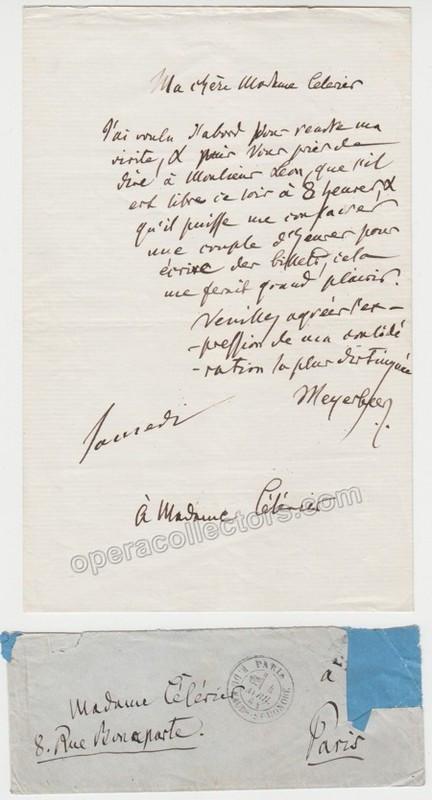 Ma chère Madame Célérier
J'ai voulu d'abord vous rendre ma
visite, & puis Vous prier de
dire à Monsieur Léon, que s'il
est libre ce soir à 8 heures, &
qu'il puisse me consacrer
une couple d'heures pour
écrire des billets, cela
me ferait grand plaisir.
Veuillez agréer l'ex-
-pression de ma considé
-ration la plus distinguée
Meyerbeer.
Samedi
à Madame Célérier
operacollectors.com
Madame Célérier
à
8. Rue Bonaparte.
Paris
PARIS